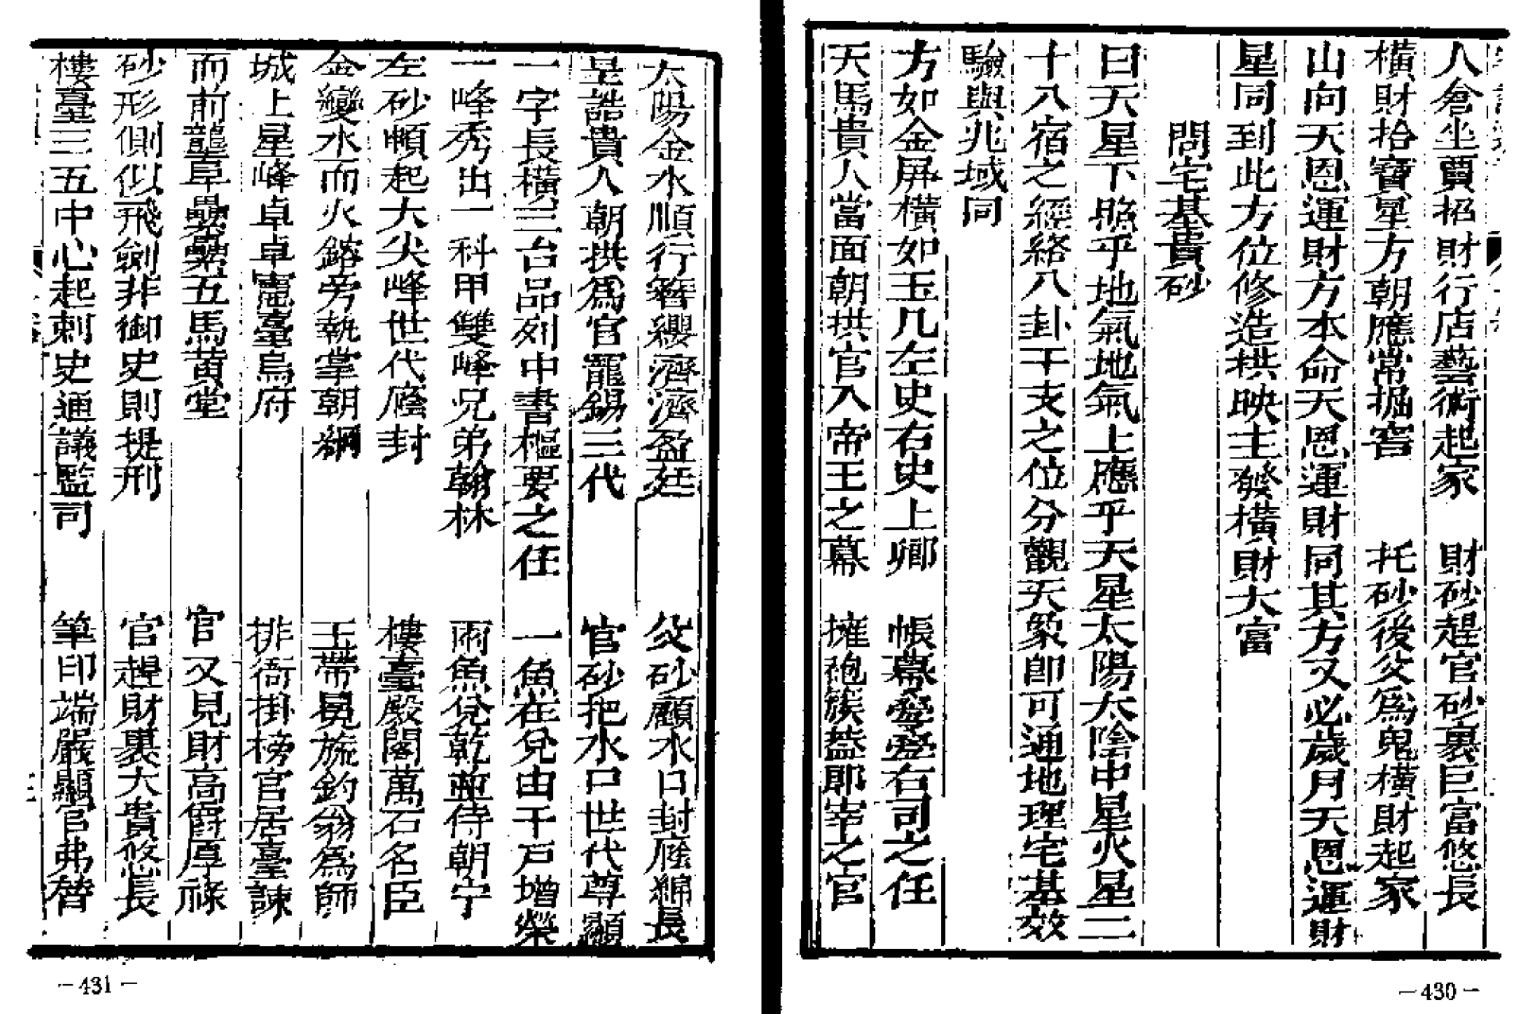 八倉坐賈招財行店藝術起家　財砂趕官砂裏巨富悠長
橫財拾寶星方朝應常掘窖　托砂後父爲鬼橫財起家
山向天恩運財方本命天恩運財同其方又必歲月天恩運財
星同到此方位修造拱映主發橫財大富
問宅基貴砂
曰天星下照乎地氣地氣上應乎天星太陽太陰中星火星二
十八宿之經絡八卦干支之位分觀天象即可通地理宅基效
驗與兆域同
方如金屏橫如玉几左史右史上卿　帳幕臺右司之任
天馬貴人當面朝拱官入帝王之幕　擁砲簇益耶宰之官
太陽金水順行簪纓濟濟盈廷　父砂顧水口封廕綿長
星誥貴人朝拱爲官寵錫三代　官砂把水口世代尊顯
一字長橫三台品列中書樞要之任　一魚在兌由千戶增榮
一峰秀出一科甲雙峰兄弟翰林　雨魚兌乾並侍朝宁
左砂頓起大尖峰世代廕封　樓臺殿閣萬石名臣
金變水而火鎔旁執掌朝綱　玉帶晃旒釣翁爲師
城上星峰卓卓憲臺烏府　排衙掛榜官居臺諫
而前龍章壘壘五馬黃堂　官又見財高爵厚祿
砂形側似飛劍非御史則提刑　官趕財裏大貴悠長
樓臺三五中心起刺史通議監司　筆印端嚴顯官弗替
－430－
－431－